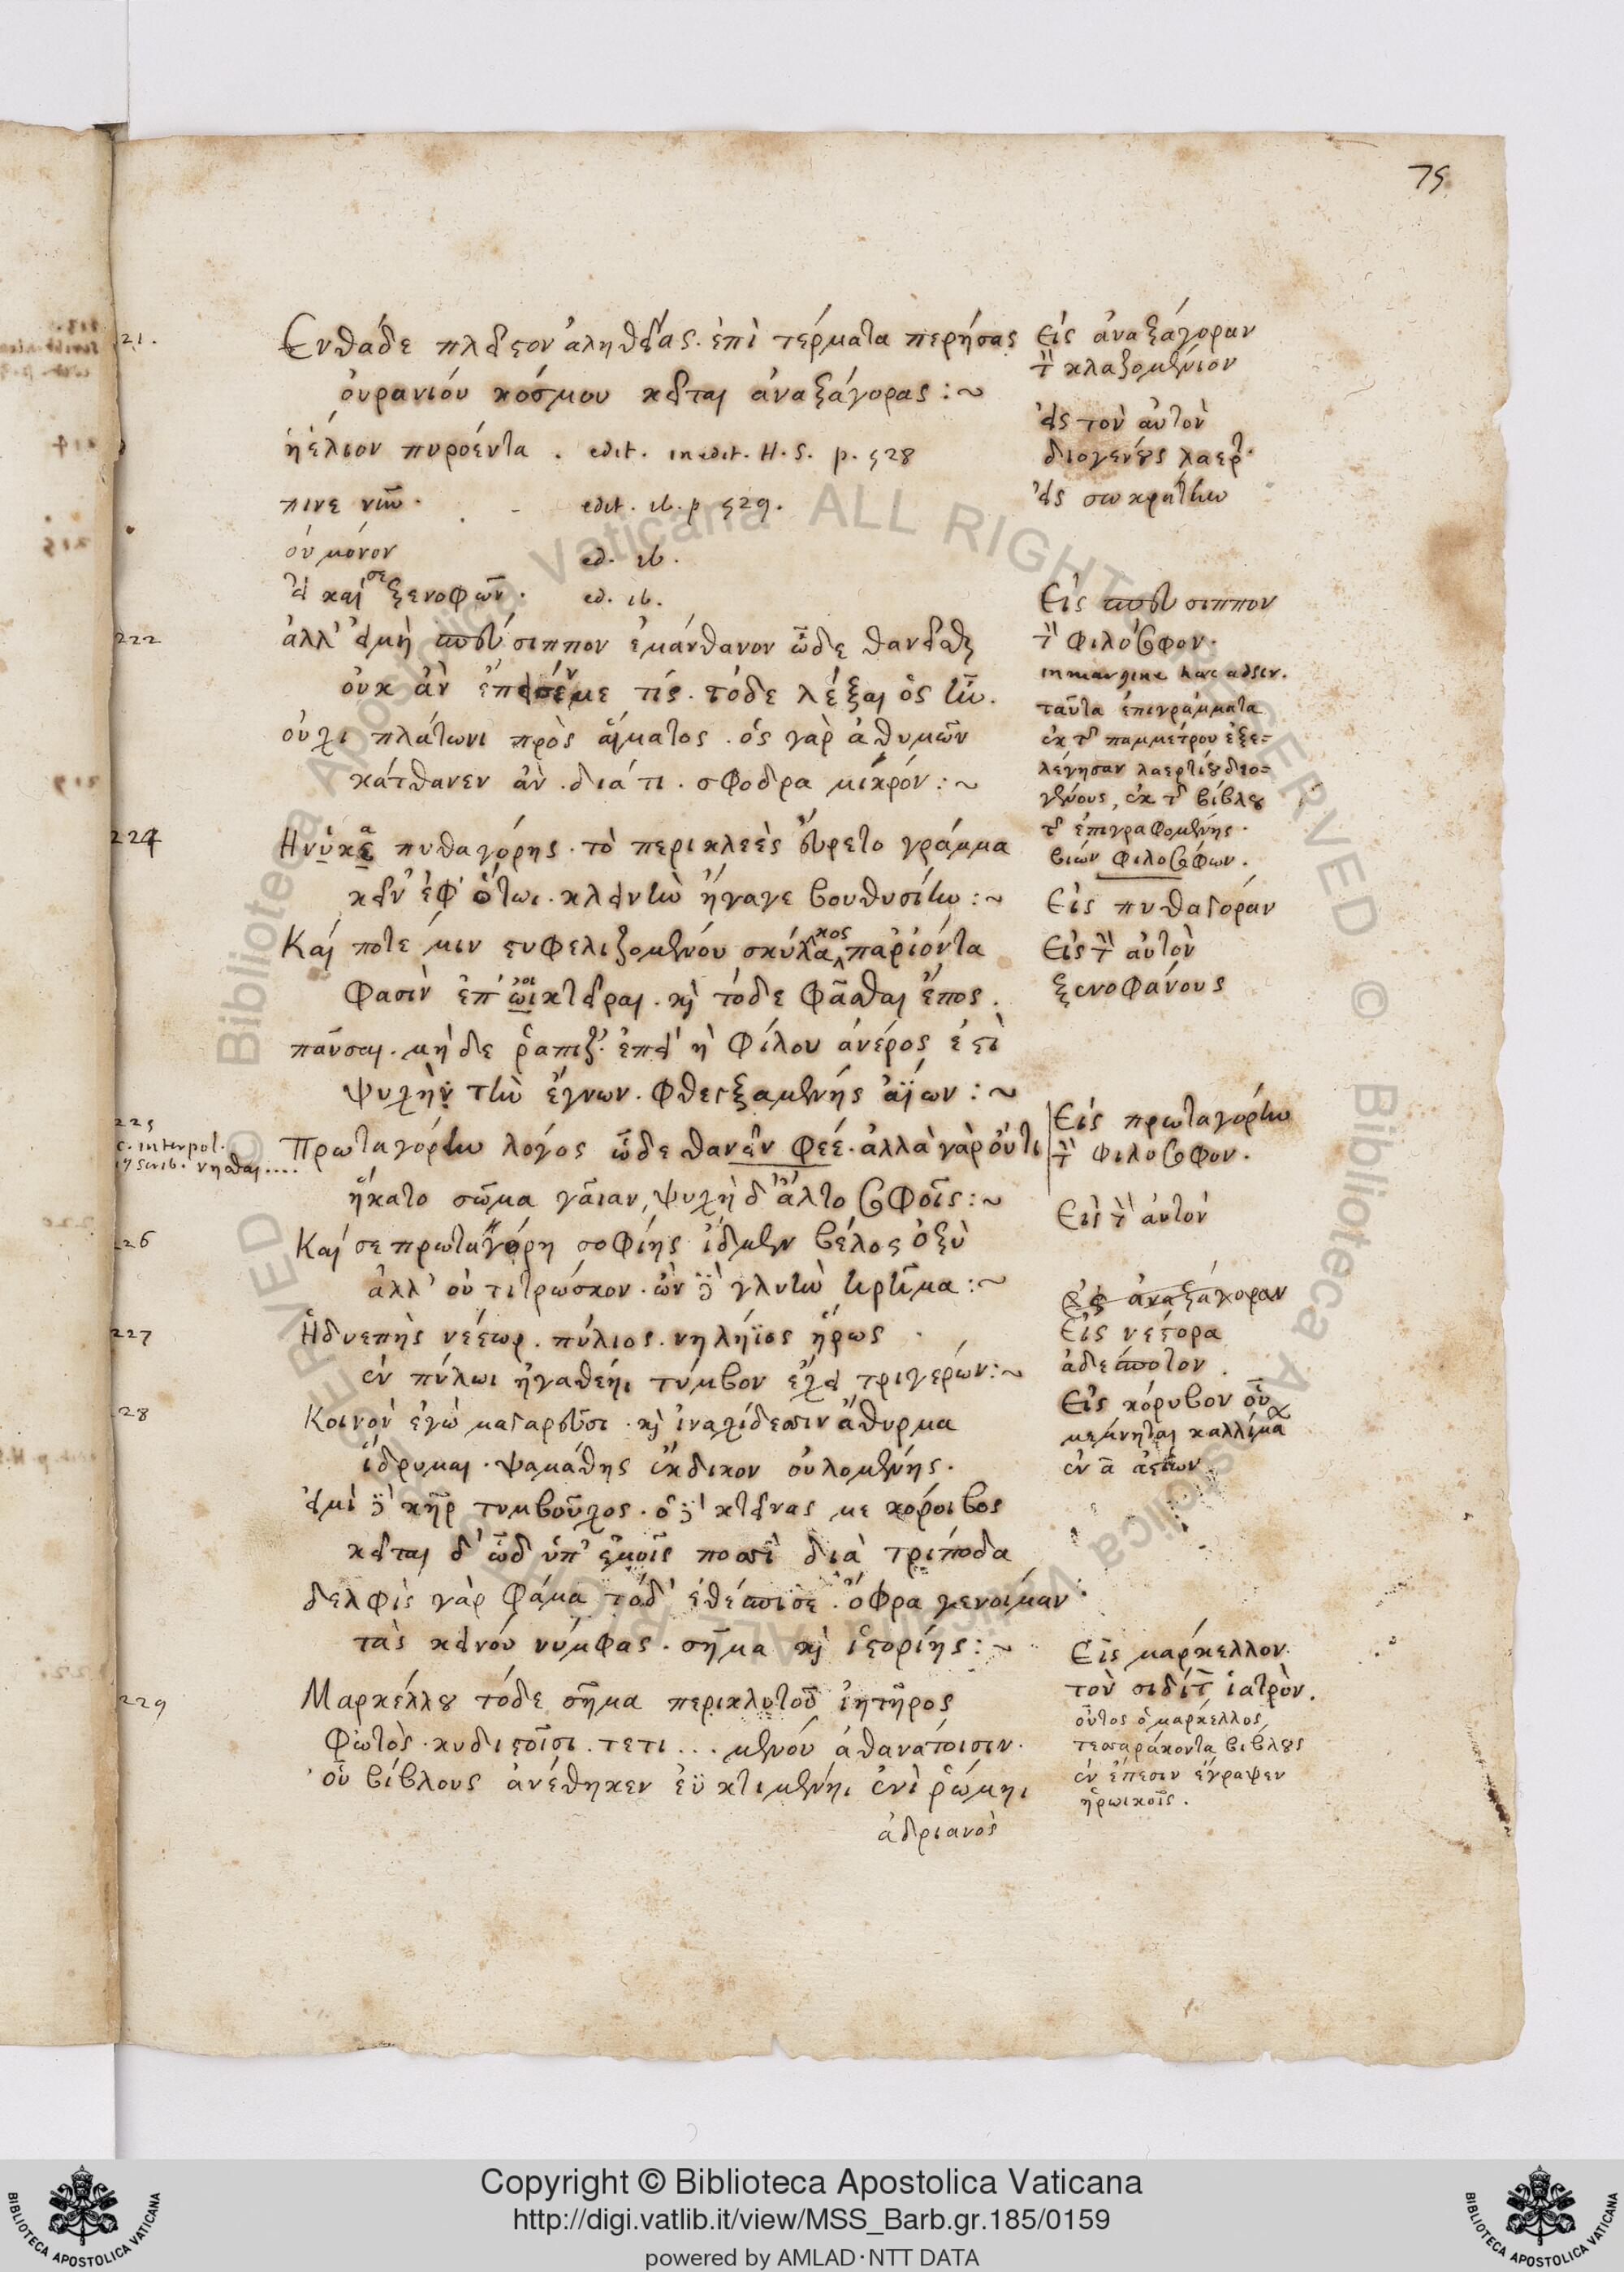 75
21.
Ενθάδε πλεῖστον ἀληθείας · ἐπὶ τέρματα περήσας
οὐρανίου κόσμου κεῖται ἀναξάγορας :~
ἠέλιον πυρόεντα . edit. inedit. H. S. p. 528
πινε νῦν . edit. ib. p 529.
οὐ μόνον ed. ib.
εἰ καί σε ξενοφῶν . ed. ib.
222
ἀλλ' εἰ μὴ σπευσιππον ἐμάνθανον ὧδε θανεῖσθαι
οὐκ ἂν ἔπεισέν με τίς . τόδε λέξαι ὃς ἦν .
οὐχι πλάτωνι πρὸς αἵματος . ὃς γὰρ ἀθυμῶν
κάτθανεν ἂν . διά τι . σφοδρα μικρόν :~
224
Ηνύκα πυθαγόρης . τὸ περικλεὲς εὕρετο γράμμα
κεῖν' ἐφ' ὅτωι . κλεινὴν ἤγαγε βουθυσίην :~
Καί ποτέ μιν στυφελιζομένου σκύλακος παριόντα
φασὶν ἐποικτεῖραι . καὶ τόδε φᾶσθαι ἔπος .
παῦσαι . μὴ δε ῥαπιζ' ἐπεὶ ἢ φίλου ἀνέρος ἐστὶ
ψυχὴν τὴν ἔγνων . φθεγξαμένης ἀΐων :~
225
c. interpol.
Πρωταγόρην λόγος ὧδε θανεῖν φέε . ἀλλὰ γὰρ οὔτι
ἥκατο σῶμα γαῖαν, ψυχὴ δ' ἆλτο σοφοῖς :~
226
Καί σε πρωταγόρη σοφίης ἴδμεν βέλος ὀξὺ
ἀλλ' οὐ τιτρώσκον . ὢν δὲ γλυκὺ
227
Ἡδυεπὴς νέστωρ . πύλιος . νηλήϊος ἥρως
ἐν πύλωι ἠγαθέηι τύμβον ἔχει τριγέρων :~
28
Κοινὸν ἐγὼ μεγαρεῦσι . καὶ ἰναχίδεσσιν ἄθυρμα
ἵδρυμαι . ψαμάθης ἔκδικον οὐλομένης .
εἰμὶ δὲ κὴρ τυμβοῦχος . ὁ δὲ κτείνας με κόροιβος
κεῖται δ' ὧδ' ὑπ' ἐμοῖς ποσσὶ διὰ τρίποδα
δελφὶς γὰρ φάμα τόδ' ἐθέσπισε . ὄφρα γενοίμαν
τᾶς κείνου νύμφας . σῆμα καὶ ἱστορίης :~
229
Μαρκέλλου τόδε σῆμα περικλυτοῦ ἰητῆρος
Φωτὸς . κυδιστοῖσι . τετι ... μένου ἀθανάτοισιν .
οὗ βίβλους ἀνέθηκεν ἐϋκτιμένηι ἐνὶ ῥώμηι
ἀδριανὸς
Εἰς ἀναξάγοραν
τὸν κλαζομένιον
εἰς τὸν αὐτὸν
διογένους λαερτ.
εἰς σωκράτην
Εἰς σπευσιππον
τὸν φιλόσοφον .
in margine haec adscr.
ταῦτα ἐπιγράμματα
ἐκ τοῦ παμμέτρου ἐξε=
λέγησαν λαερτίου διο=
γένους, ἐκ τοῦ βίβλου
τῆς ἐπιγραφομένης .
βιών φιλοσόφων .
Εἰς πυθαγόραν
Εἰς τὸν αὐτὸν
ξενοφάνους
Εἰς πρωταγόρην
τὸν φιλόσοφον .
Εἰς τὸν αὐτὸν
Εἰς ἀναξάγοραν
Εἰς νέστορα
ἀδέσποτον .
Εἰς κόρυβον οὗ
μέμνηται καλλίμαχ
ἐν α αἰτίων
Εἰς μάρκελλον
τὸν σιδίτ ἰατρὸν .
οὗτος ὁ μάρκελλος
τεσσαράκοντα βιβλους
ἐν ἔπεσιν ἔγραψεν
ἡρωικοῖς .
© Biblioteca Apostolica Vaticana ALL RIGHTS RESERVED
Copyright © Biblioteca Apostolica Vaticana
http://digi.vatlib.it/view/MSS_Barb.gr.185/0159
powered by AMLAD·NTT DATA
BIBLIOTECA APOSTOLICA VATICANA
BIBLIOTECA APOSTOLICA VATICANA